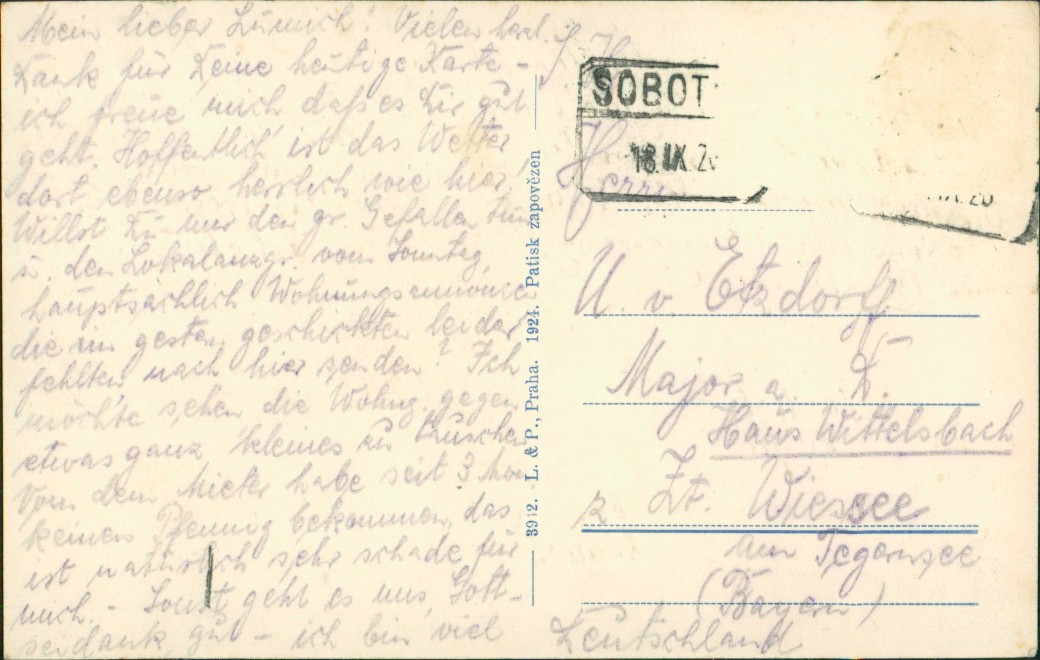 Mein lieber Lumich! Vielen herzl.
Dank für Deine heutige Karte -
ich freue mich, daß es Dir gut
geht. Hoffentlich ist das Wetter
dort ebenso herrlich wie hier!
Willst Du mir den gr. Gefallen tun
u. den Lokalanzgr. vom Sonntag,
hauptsächlich Wohnungsannoncen
die im gestern geschickten leider
fehlten, nach hier senden? Ich
möchte sehen die Wohng. gegen
etwas ganz kleines zu tauschen
Von dem Mieter habe seit 3 Mon.
keinen Pfennig bekommen, das
ist natürlich sehr schade für
mich. - Sonst geht es uns, Gott-
seidank, gut - ich bin viel
392. L. & P., Praha. 1924. Patisk zapovězen
SOBOT
18.IX.2
IX.26
Herrn
U. v. Etzdorff
Major a. D.
Haus Wittelsbach
z. Zt. Wiessee
am Tegernsee
(Bayern)
Deutschland